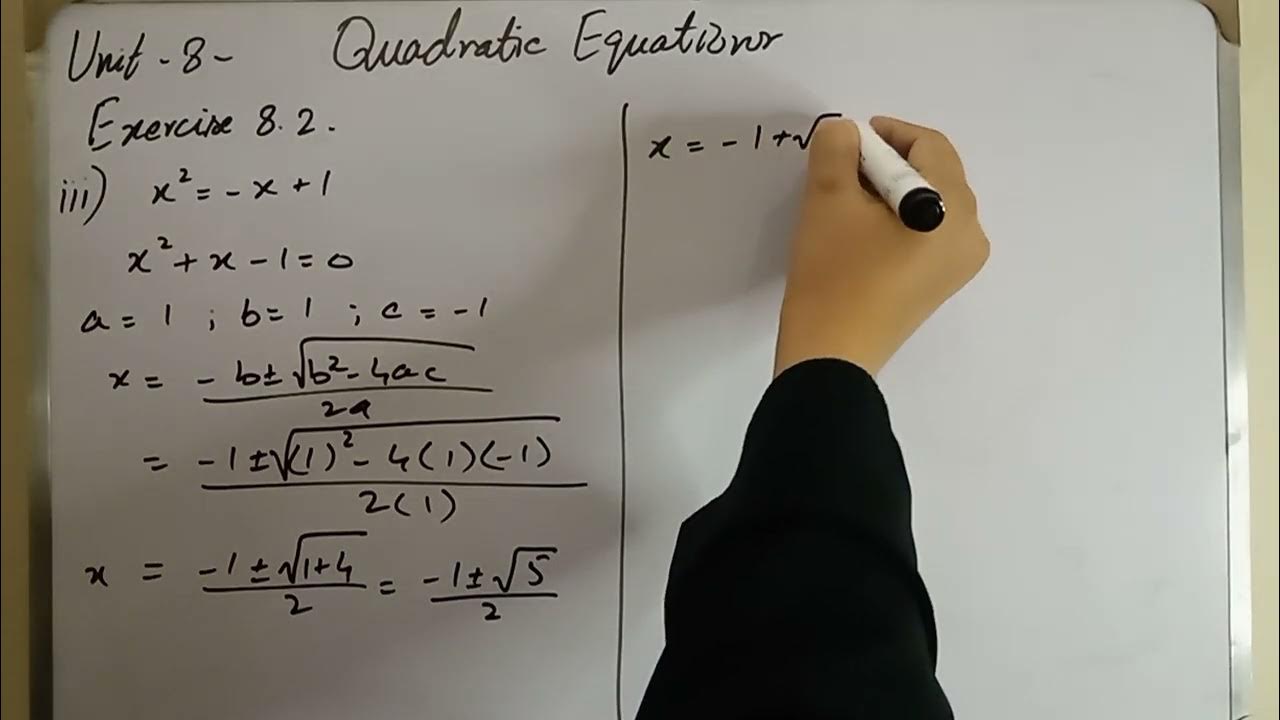 Unit - 8 - Quadratic Equations
Exercise 8.2.
iii) x² = - x + 1
x² + x - 1 = 0
a = 1 ; b = 1 ; c = -1
x = - b ± √b² - 4ac
2a
= -1 ± √(1)² - 4(1)(-1)
2(1)
x = -1 ± √1+4 = -1 ± √5
2 2
x = - 1 + √